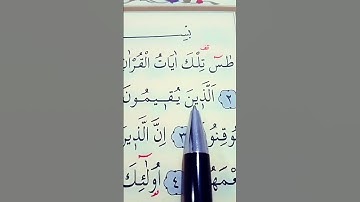 بِسْ
طٰسٓ تِلْكَ اٰيَاتُ الْقُرْاٰنِ
﴿٢﴾ اَلَّذ۪ينَ يُق۪يمُونَ
يُوقِنُونَ ﴿٣﴾ اِنَّ الَّذ۪ينَ
يَعْمَهُونَ ﴿٤﴾ اُو۬لٰٓئِكَ